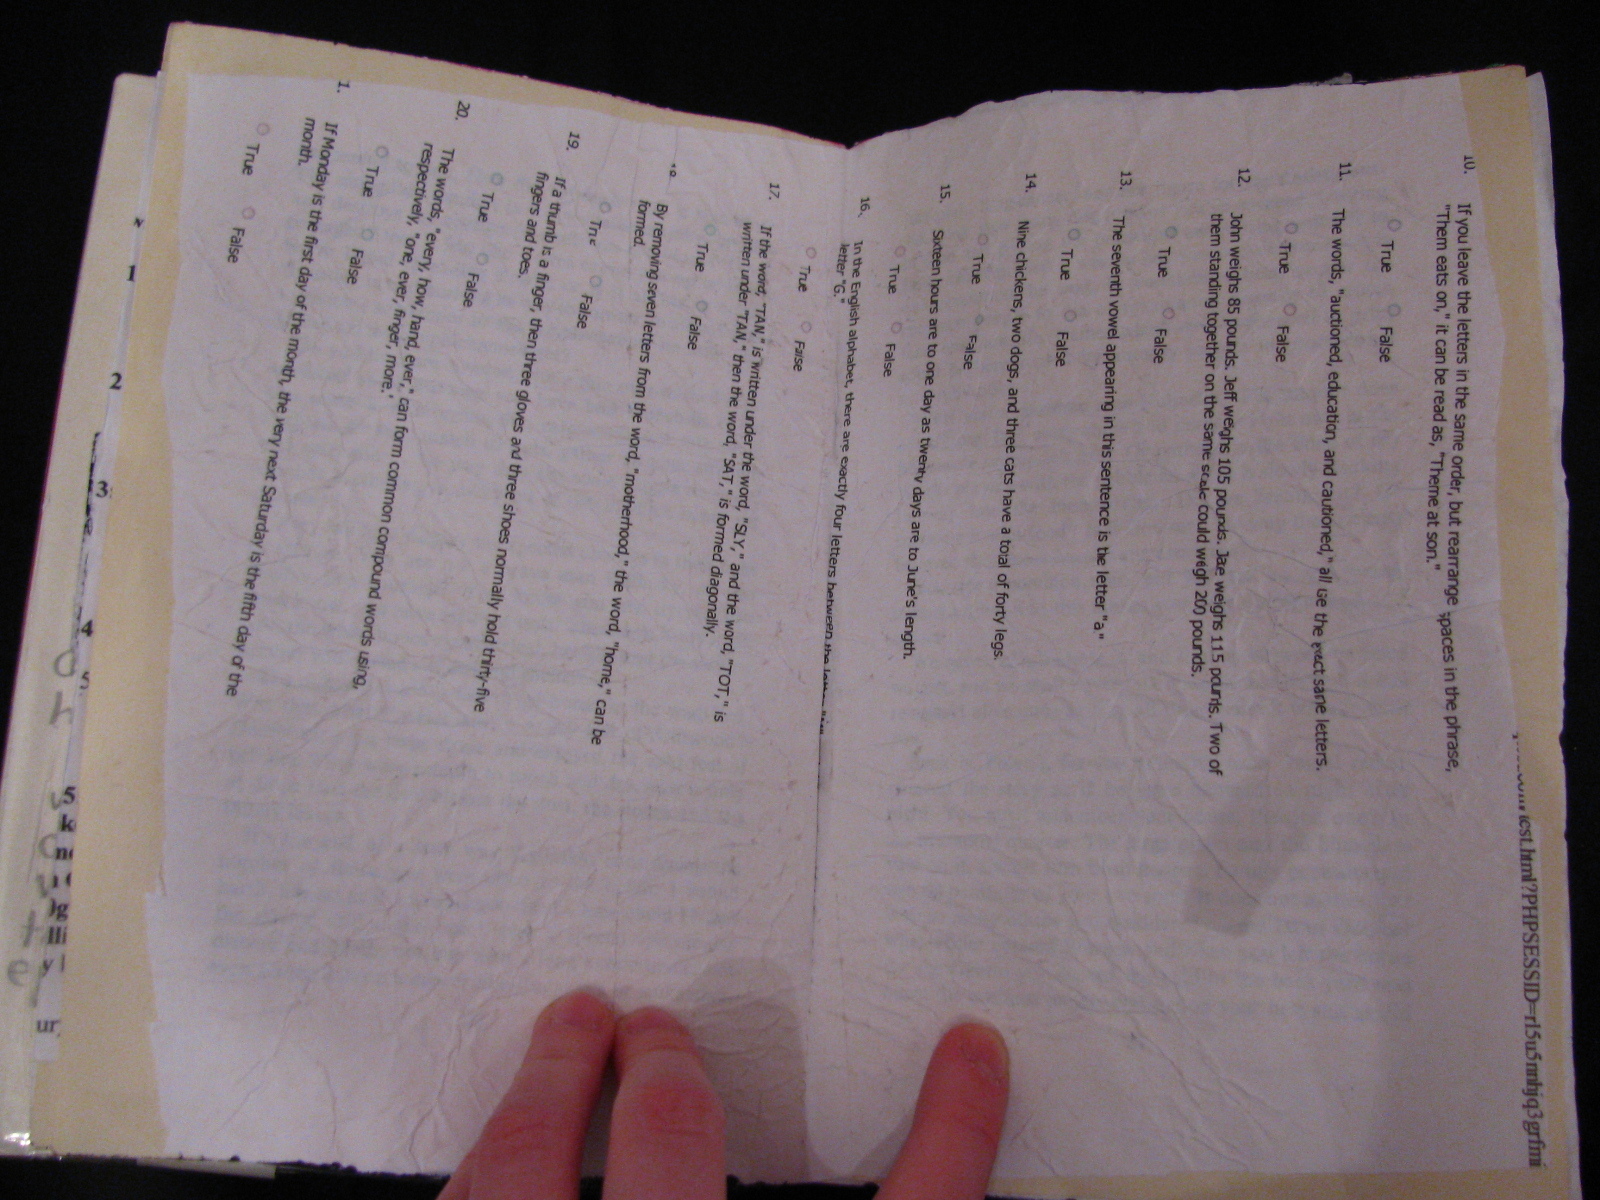 10. If you leave the letters in the same order, but rearrange spaces in the phrase,
"Them eats on," it can be read as, "Theme at son."
True False
11. The words, "auctioned, education, and cautioned," all use the exact same letters.
True False
12. John weighs 85 pounds. Jeff weighs 105 pounds. Jake weighs 115 pounds. Two of
them standing together on the same scale could weigh 200 pounds.
True False
13. The seventh vowel appearing in this sentence is the letter "a."
True False
14. Nine chickens, two dogs, and three cats have a total of forty legs.
True False
15. Sixteen hours are to one day as twenty days are to June's length.
True False
16. In the English alphabet, there are exactly four letters between the letter
letter "G."
True False
17. If the word, "TAN," is written under the word, "SLY," and the word, "TOT," is
written under "TAN," then the word, "SAT," is formed diagonally.
True False
By removing seven letters from the word, "motherhood," the word, "home," can be
formed.
True False
19. If a thumb is a finger, then three gloves and three shoes normally hold thirty-five
fingers and toes.
True False
20. The words, "every, how, hand, ever," can form common compound words using,
respectively, "one, ever, finger, more."
True False
1. If Monday is the first day of the month, the very next Saturday is the fifth day of the
month.
True False
1
2
3
4
5